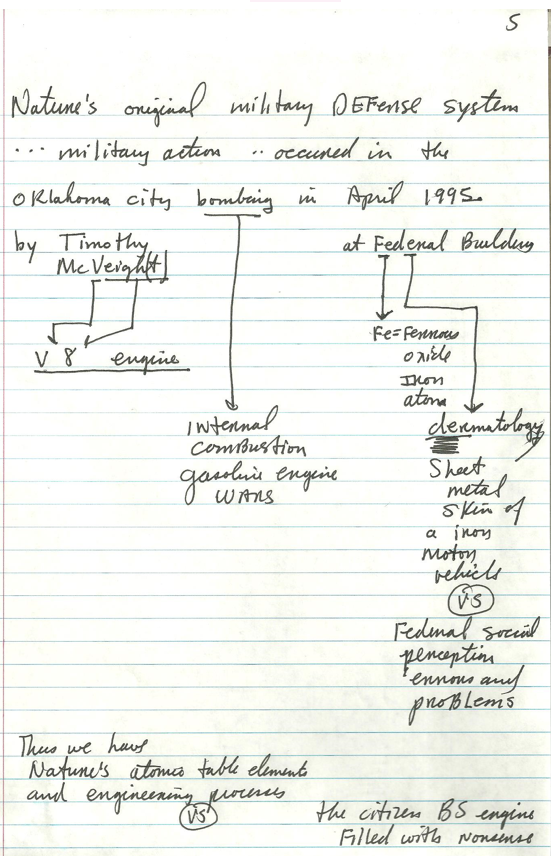 5
Nature's original military DEFense system
... military action .. occured in the
OKlahoma city bombing in April 1995
by Timothy at Federal Building
McVeigh(t)
V 8 engine
Fe=Ferrous
oxide
Iron
atom
internal
combustion
gasoline engine
WARS
dermatology
Sheet
metal
skin of
a iron
motor
vehicle
VS
Federal social
perception
errors and
problems
Thus we have
Nature's atomic table elements
and engineering processes
VS
the citizen BS engine
Filled with nonsense